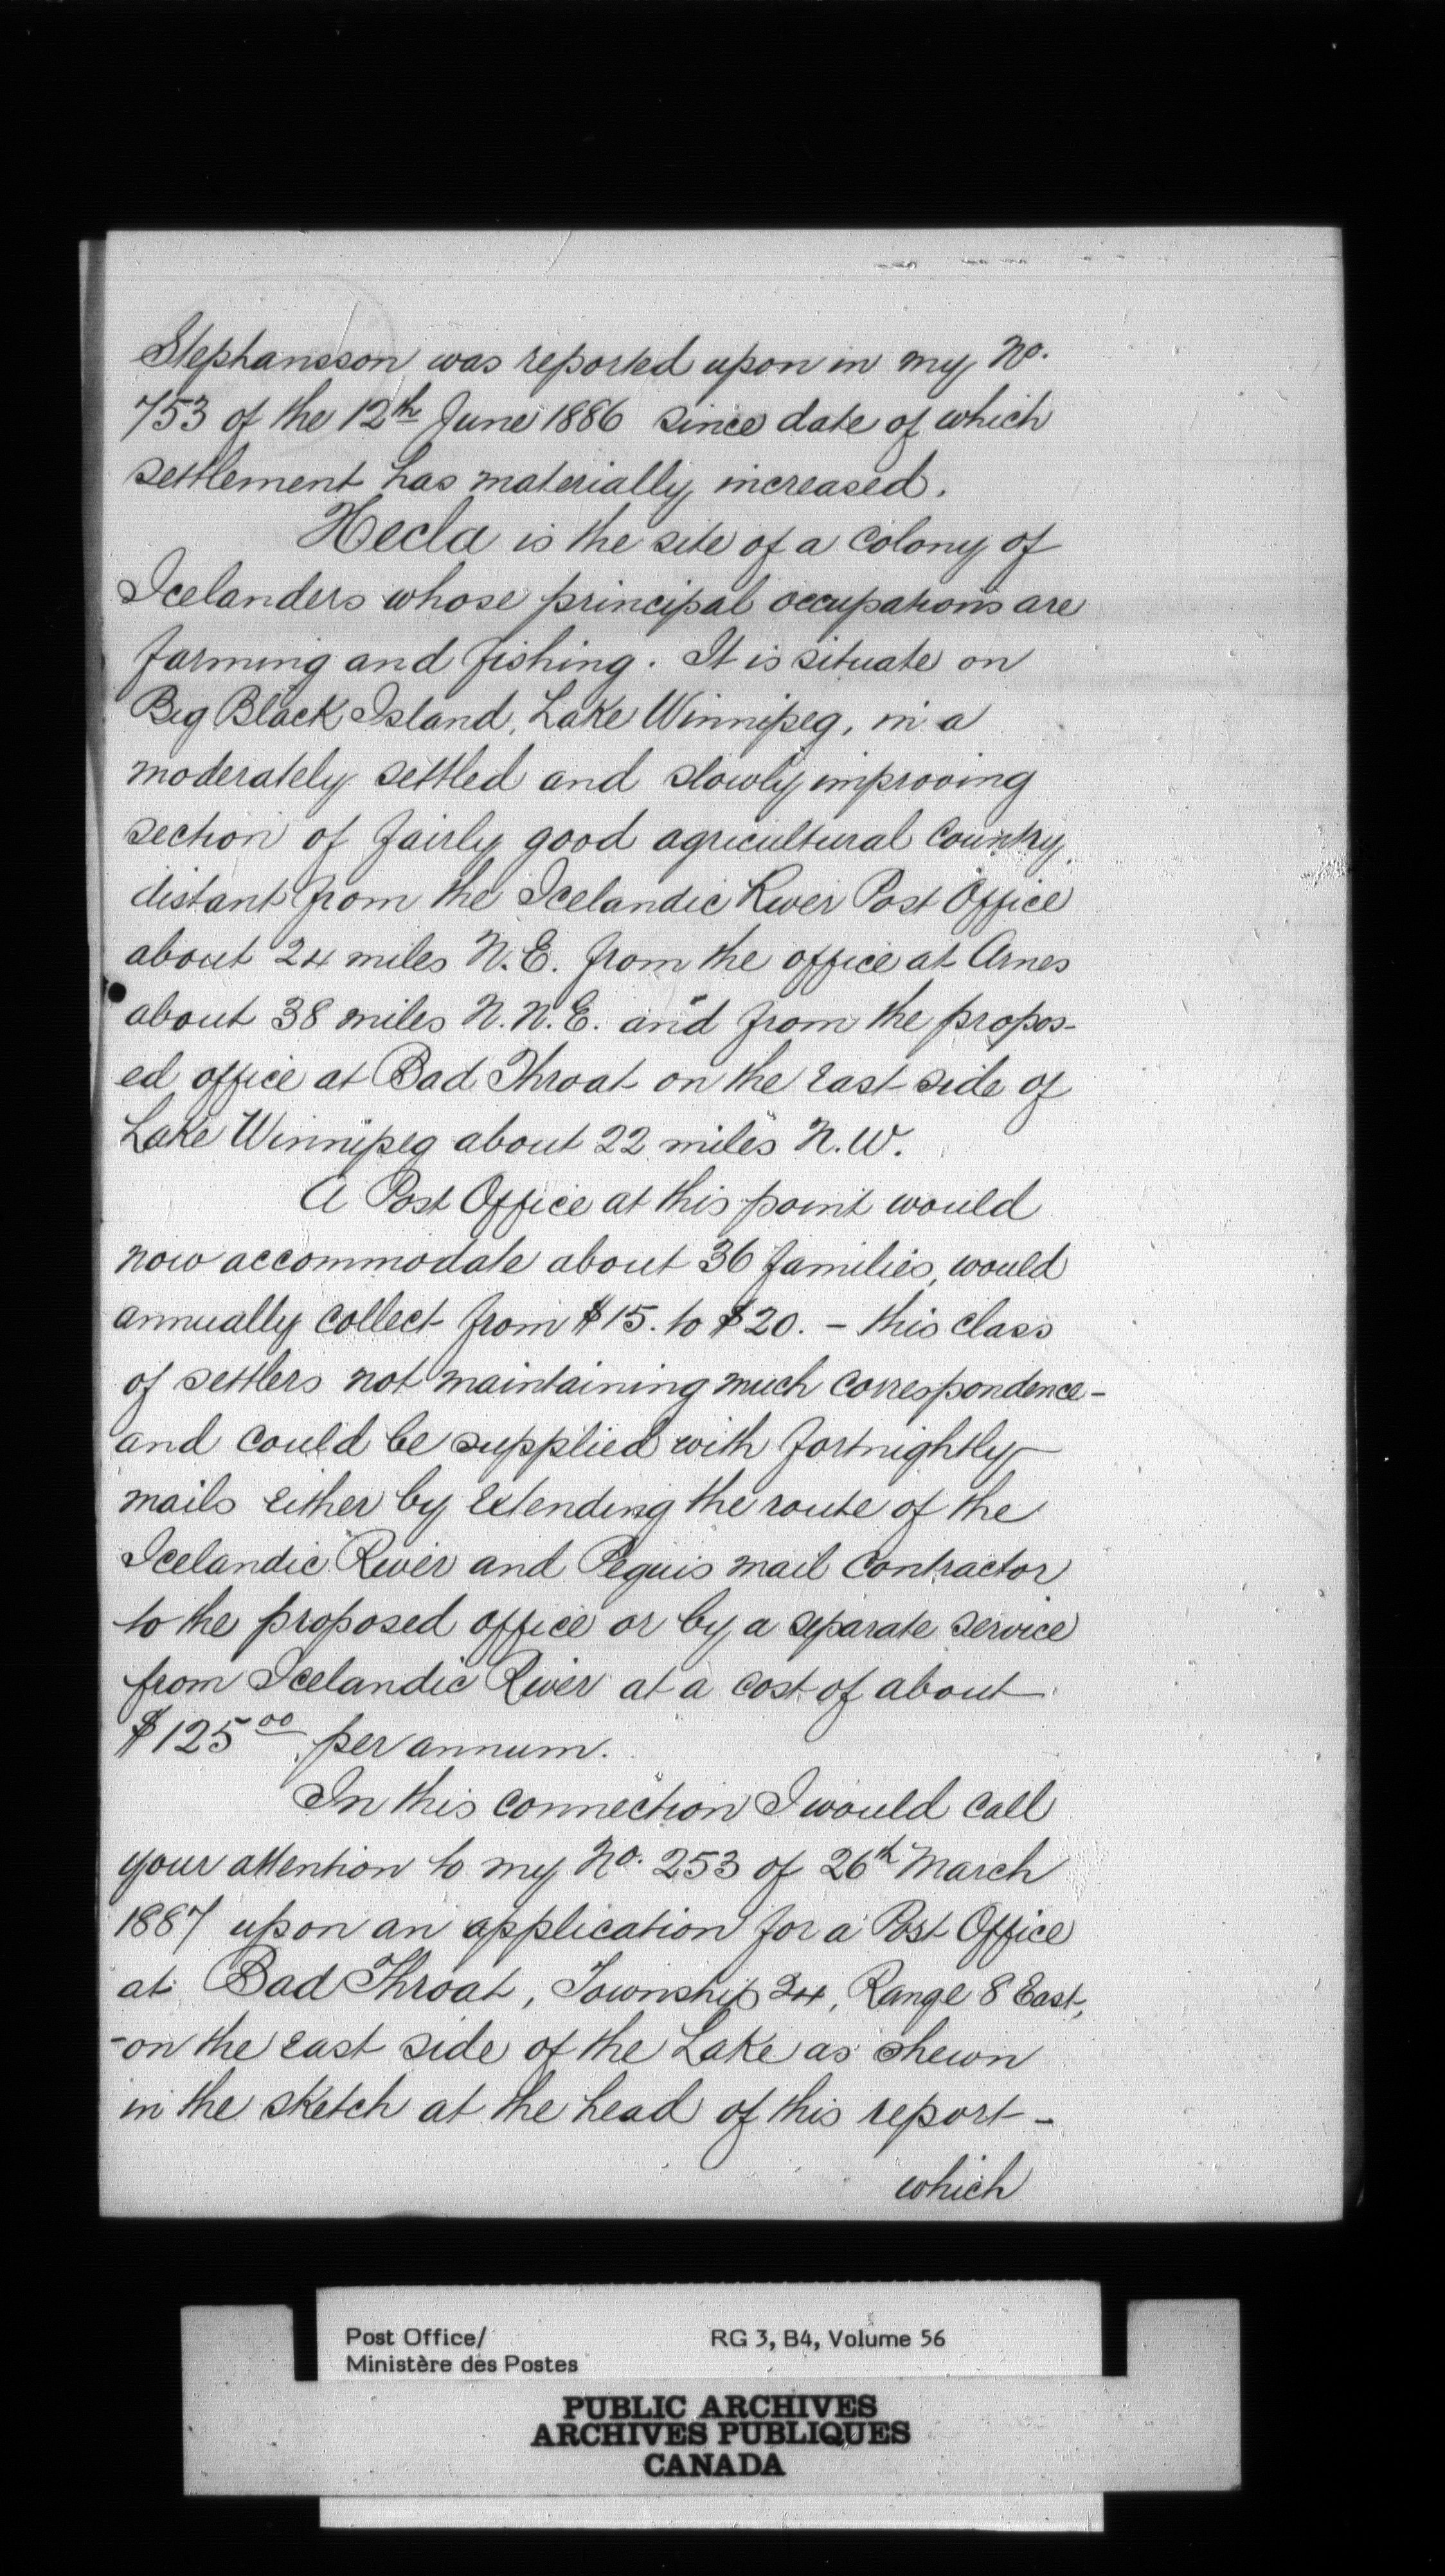 Stephansson was reported upon in my No.
753 of the 12th June 1886 since date of which
settlement has materially increased.
Hecla is the site of a colony of
Icelanders whose principal occupations are
farming and fishing. It is situate on
Big Black Island, Lake Winnipeg, in a
moderately settled and slowly improving
section of fairly good agricultural country
distant from the Icelandic River Post Office
about 24 miles N.E. from the office at Arnes
about 38 miles N.N.E. and from the propos-
ed office at Bad Throat on the east side of
Lake Winnipeg about 22 miles N.W.
A Post Office at this point would
now accommodate about 36 families, would
annually collect from $15. to $20. - this class
of settlers not maintaining much correspondence -
and could be supplied with fortnightly
mails either by extending the route of the
Icelandic River and Peguis mail contractor
to the proposed office or by a separate service
from Icelandic River at a cost of about
$125 00 per annum.
In this connection I would call
your attention to my No. 253 of 26th March
1887 upon an application for a Post Office
at Bad Throat, Township 24, Range 8 East,
-on the east side of the Lake as shewn
in the sketch at the head of this report -
which
Post Office/ RG 3, B4, Volume 56
Ministère des Postes
PUBLIC ARCHIVES
ARCHIVES PUBLIQUES
CANADA